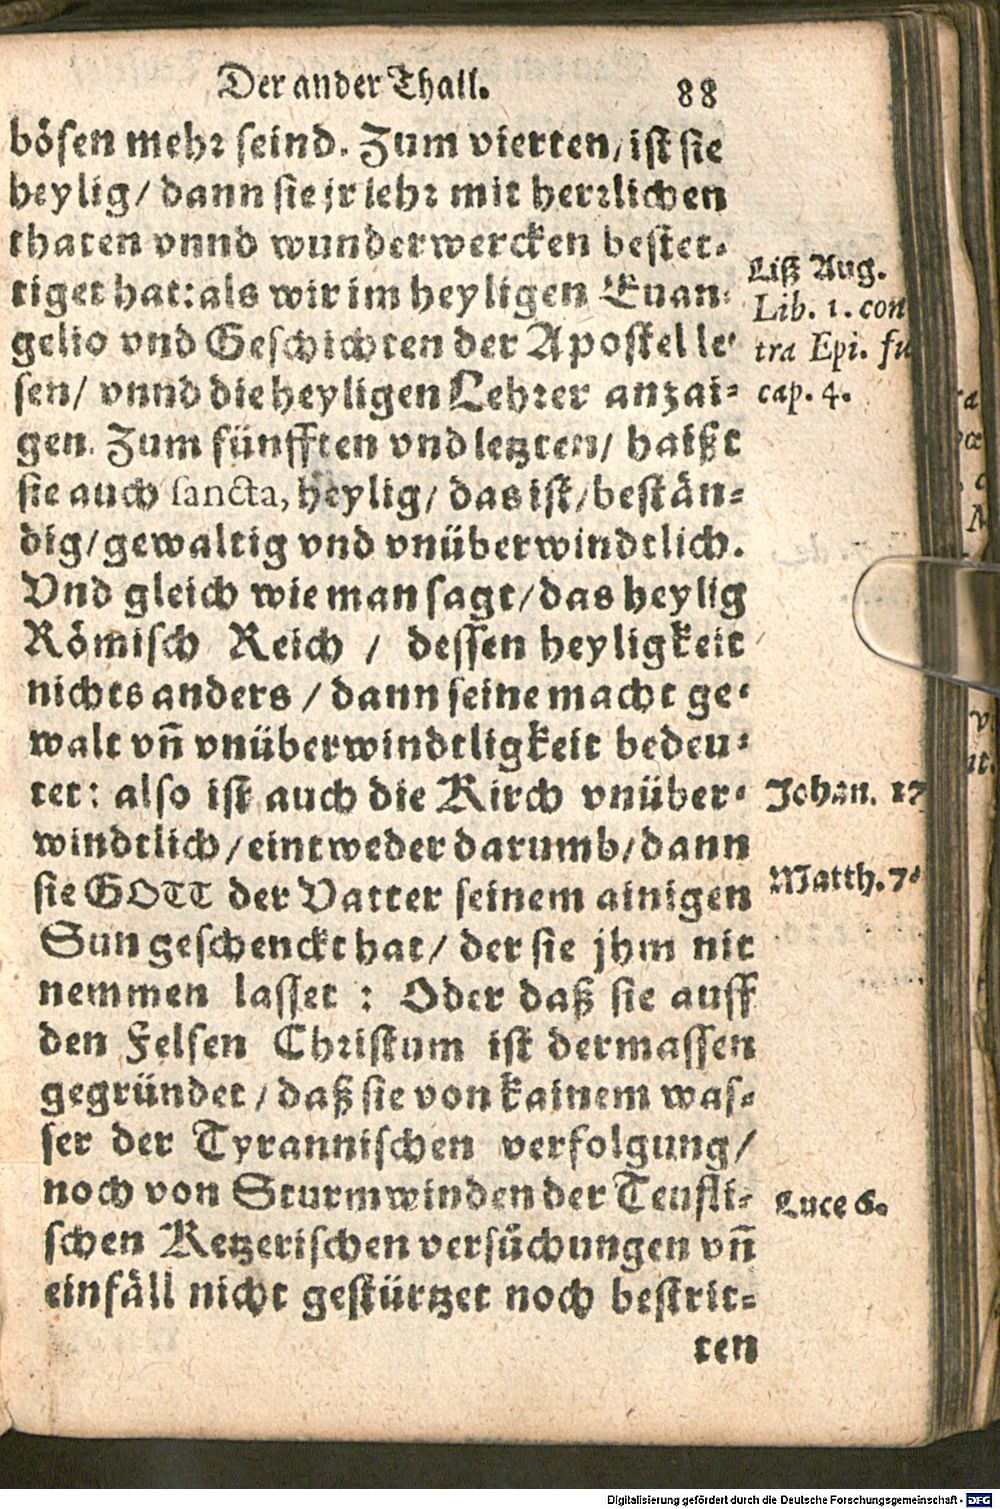 Der ander Thall.
88
bösen mehr seind. Zum vierten/ ist sie
heylig/ dann sie jr lehr mit herrlichen
thaten vnnd wunderwercken bestet-
tiget hat: als wir im heyligen Euan-
gelio vnd Geschichten der Apostel le-
sen/ vnnd die heyligen Lehrer anzai-
gen. Zum fünfften vnd letzten/ haißt
sie auch sancta, heylig/ das ist/ bestän-
dig/ gewaltig vnd vnüberwindtlich.
Vnd gleich wie man sagt/ das heylig
Römisch Reich / dessen heyligkeit
nichts anders / dann seine macht ge-
walt vn̄ vnüberwindtligkeit bedeu-
tet: also ist auch die Kirch vnüber-
windtlich/ eintweder darumb/ dann
sie GOTT der Vatter seinem ainigen
Sun geschenckt hat/ der sie jhm nit
nemmen lasset : Oder daß sie auff
den Felsen Christum ist dermassen
gegründet / daß sie von kainem was-
ser der Tyrannischen verfolgung/
noch von Sturmwinden der Teufli-
schen Ketzerischen versuchungen vn̄
einfäll nicht gestürtzet noch bestrit-
ten
Liß Aug.
Lib. 1. con
tra Epi. fu
cap. 4.
Johan. 17
Matth. 7.
Luce 6.
Digitalisierung gefördert durch die Deutsche Forschungsgemeinschaft - DFG